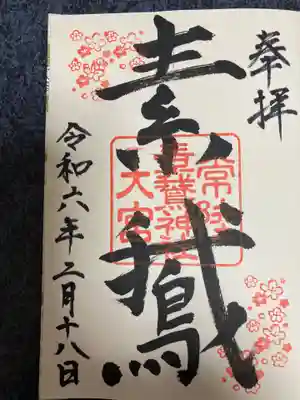 奉拝
素鵞
常陸
素鵞神社
大宮
令和六年二月十八日